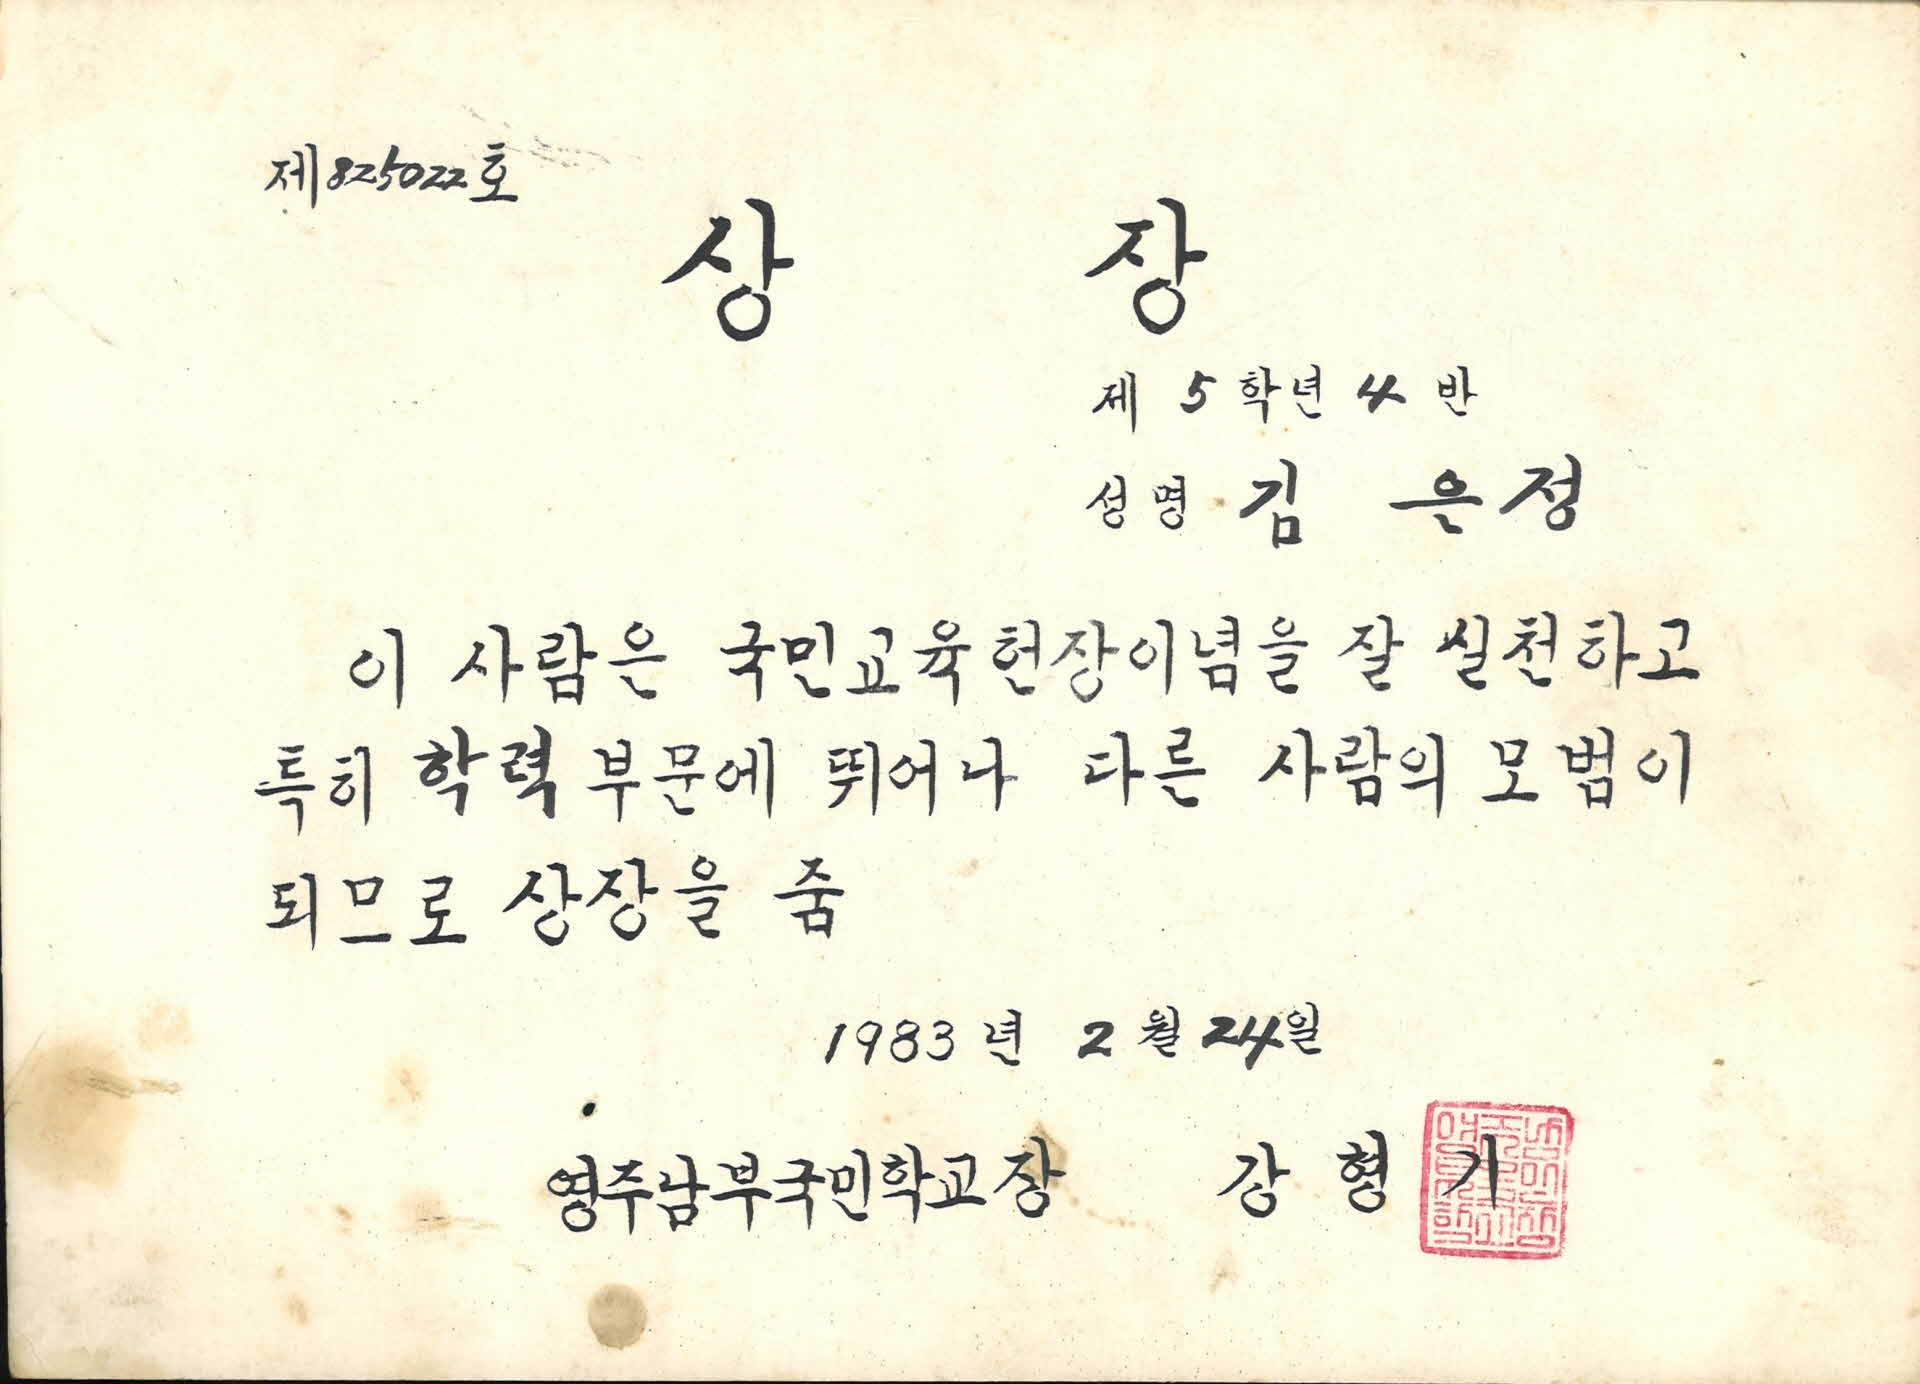 제825022호
상 장
제 5 학년 4 반
성명 김 은정
이 사람은 국민교육헌장이념을 잘 실천하고
특히 학력 부문에 뛰어나 다른 사람의 모범이
되므로 상장을 줌
1983 년 2 월 24일
영주남부국민학교장 강 형 기